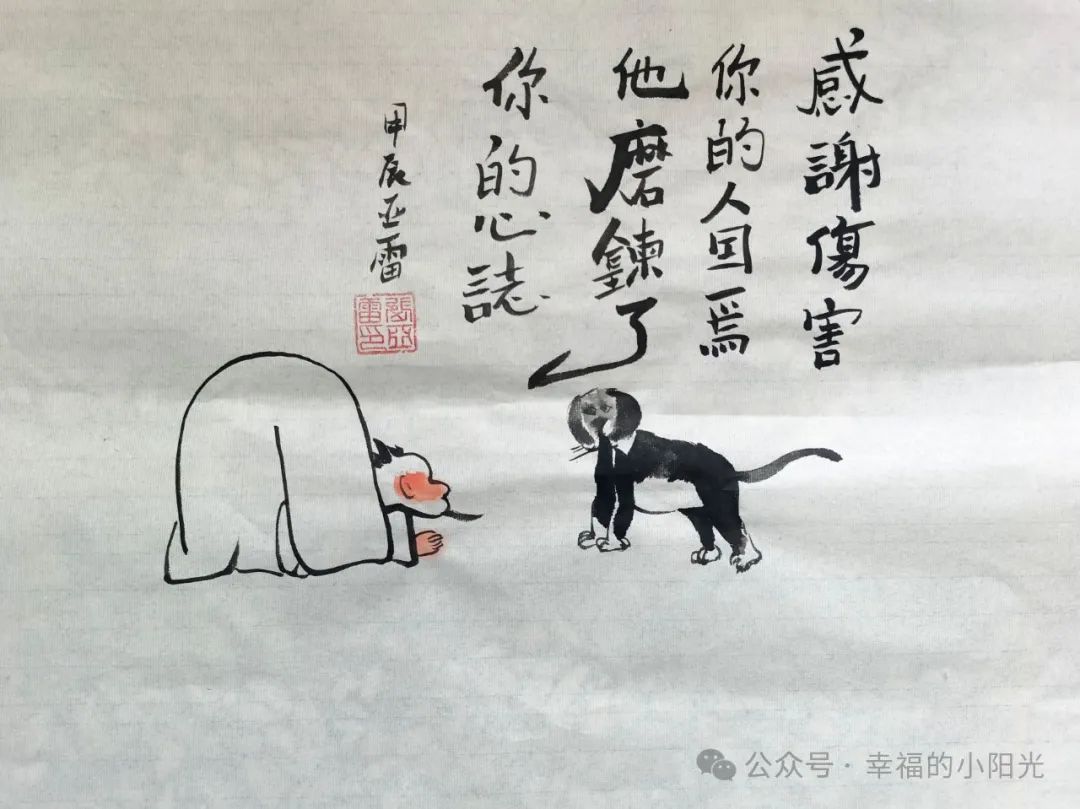 感謝傷害
你的人因爲
他磨鍊了
你的心誌
甲辰亚雷
張亞雷印
公众号·幸福的小阳光